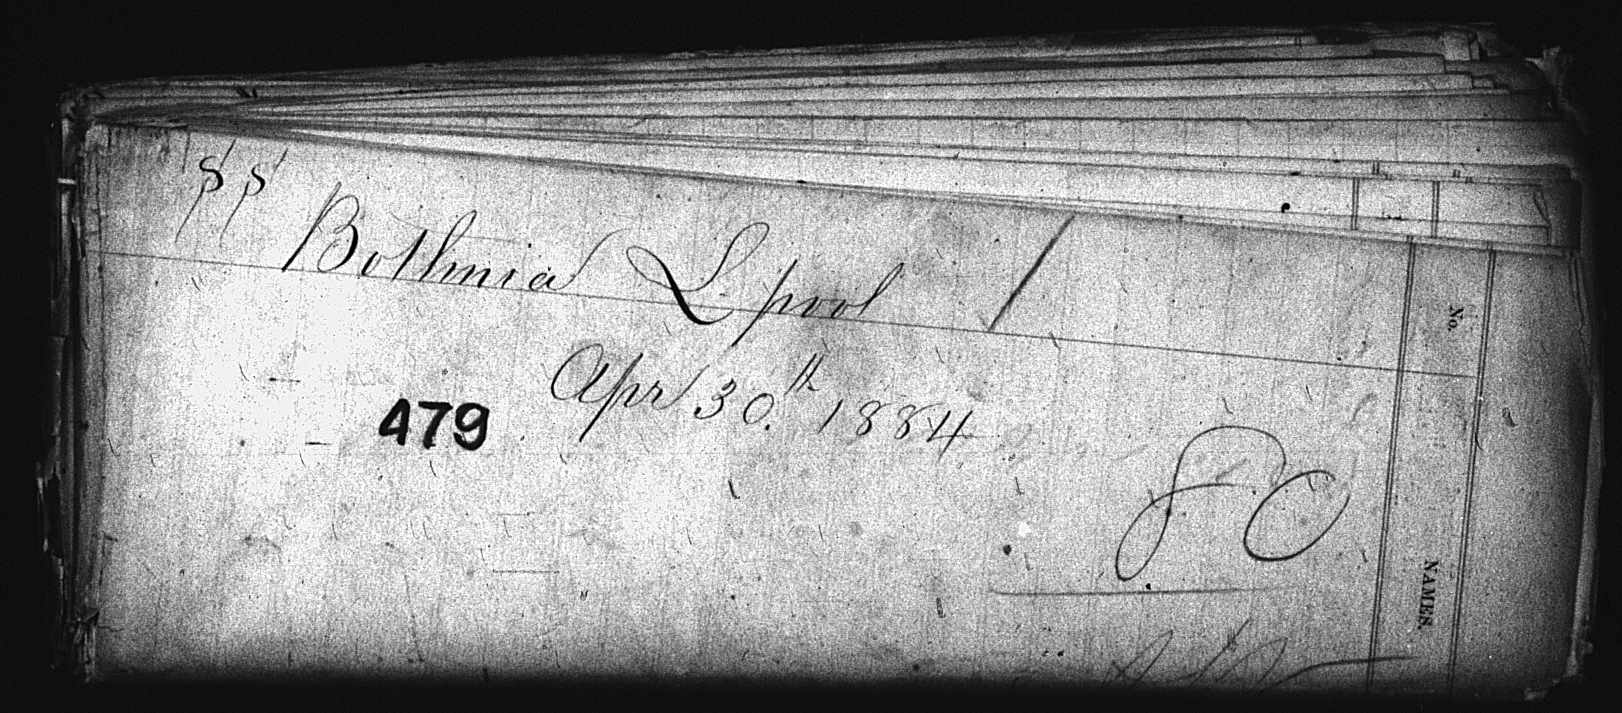 SS
Bothnia L'pool /
Apr 30.th 1884
479
80
No.
NAMES.